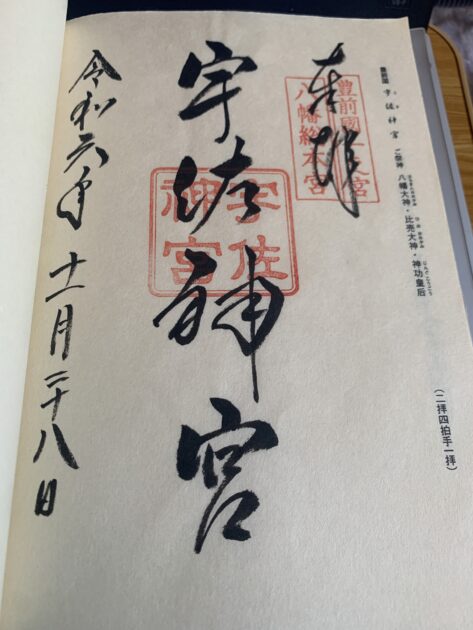 豊前国 宇佐神宮 ご祭神 八幡大神・比売大神・神功皇后
(二拝四拍手一拝)
奉拝
豊前國一之宮
八幡総本宮
宇佐神宮
宇佐
神宮
令和六年 十一月二十八日